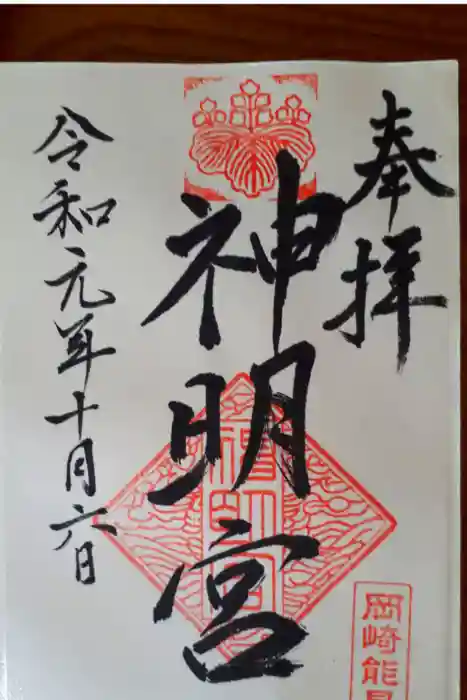 奉拝
神明宮
令和元年十月六日
神明宮
岡崎能見